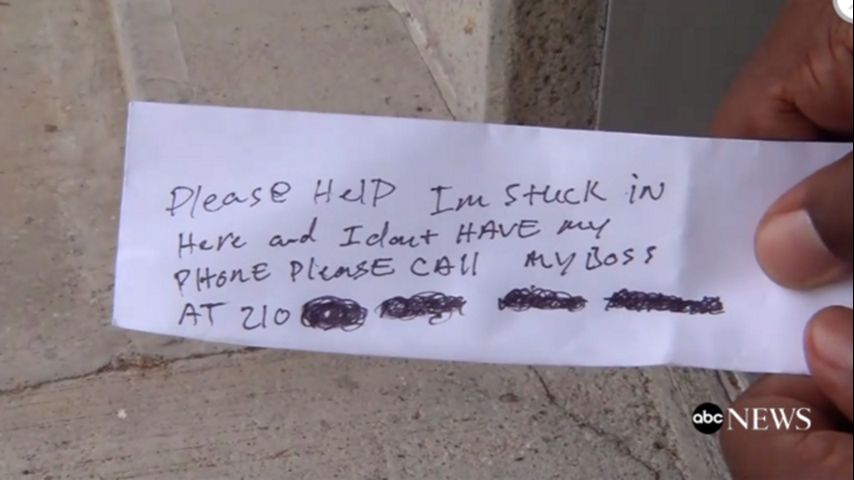 Please Help Im stuck in
Here and I dont HAVE my
PHONE Please CAll MY Boss
AT 210
abc NEWS